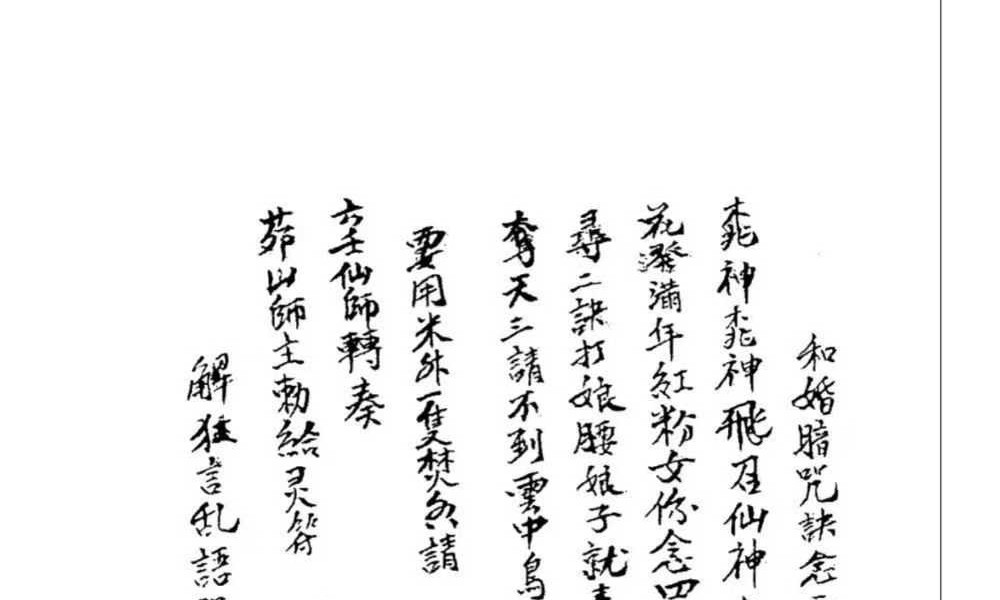 和婚暗咒訣念
桃神桃神飛召仙神
花發滿年紅粉女你念四
尋二訣打娘腰娘子就
奪天三請不到雲中鳥
要用米外一隻焚為請
六壬仙師轉奏
茆山師主勅給灵符
解狂言乱語